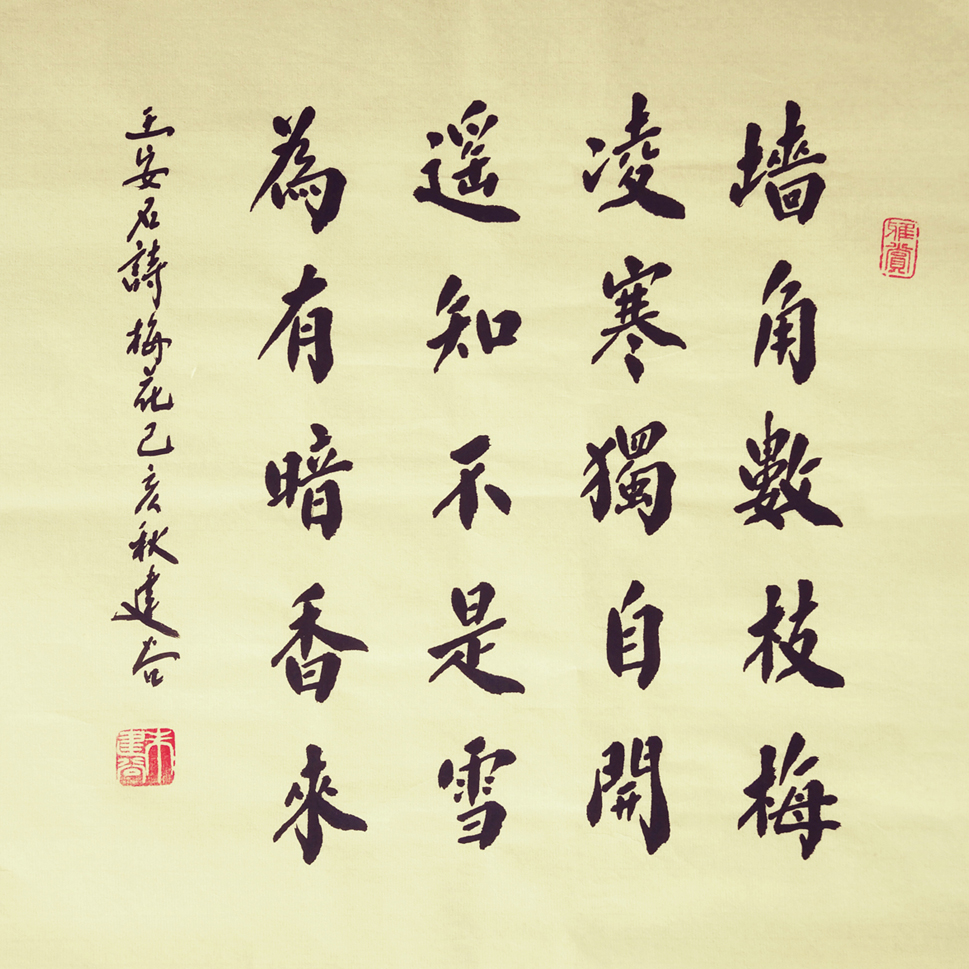 雅賞
墙角數枝梅
凌寒獨自開
遥知不是雪
為有暗香來
王安石詩梅花己亥秋建谷
朱建谷